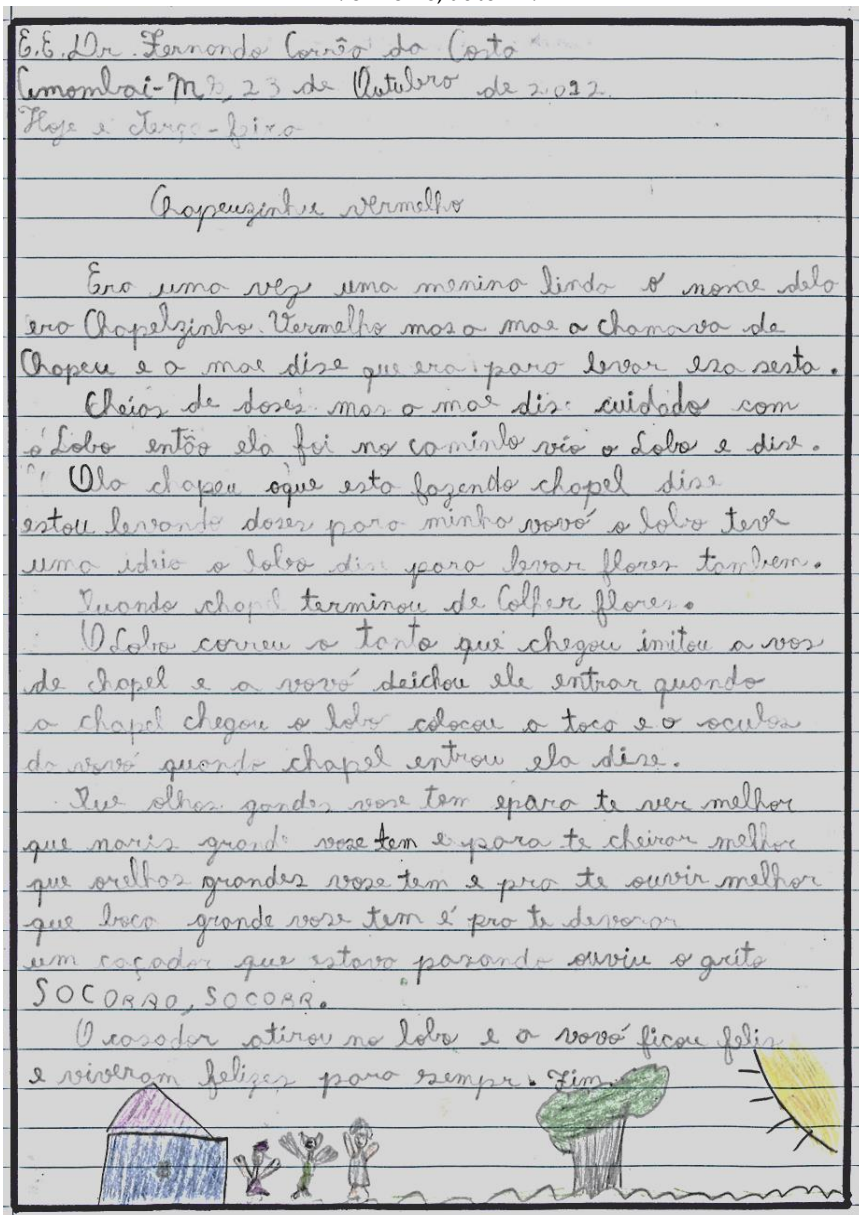 E.E. Dr. Fernando Corrêa da Costa
Amambai-MS, 23 de Outubro de 2.012.
Hoje é Terça-feira
Chapeuzinhu vermelho
Era uma vez uma menina linda o nome dela
era Chapelzinho Vermelho mas a mae a chamava de
Chapeu e a mae dise que era para levar esa sesta.
Cheias de doses mas a mae dis: cuidado com
o Lobo então ela foi no caminho vio o Lobo e dise.
Ola chapeu oque esta fazendo chapel dise
estou levando doses para minha vovó o lobo teve
uma idéia o lobo dise para levar flores tambem.
Quando chapel terminou de Colher flores.
O Lobo correu o tanto que chegou imitou a vos
de chapel e a vovó deichou ele entrar quando
a chapel chegou o lobo colocou a toca e o oculos
da vovó quando chapel entrou ela dise.
Que olhos gandes vose tem epara te ver melhor
que naris grande vose tem e para te cheirar melhor
que orelhas grandes vose tem e pra te ouvir melhor
que boca grande vose tem é pro te devorar
um caçador que estava pasando ouviu o grito
SOCORRO, SOCORR.
O casador atirou no lobo e a vovó ficou felis
e viveram felizes para sempr. Fim.